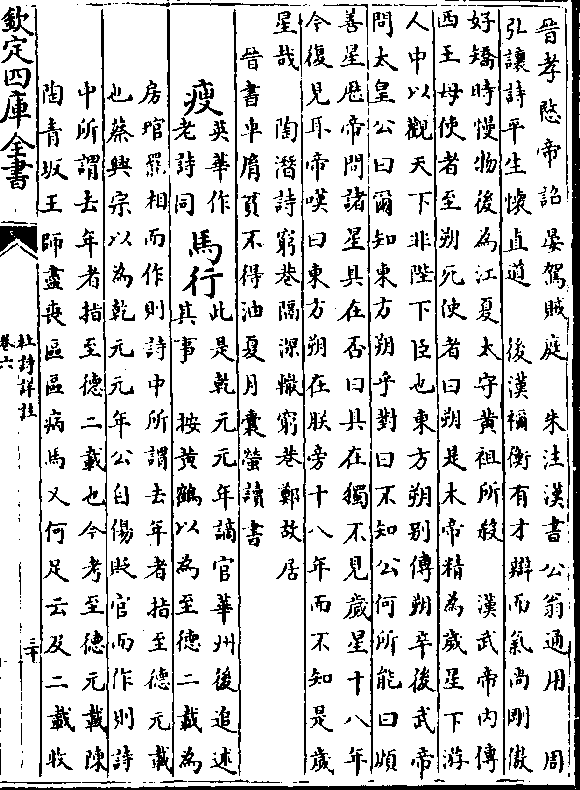 晉孝愍帝詔晏駕賊庭　朱注漢書公翁通用　周
弘讓詩平生懷直道　後漢禰衡有才辯而氣尚剛傲
好矯時慢物後為江夏太守黃祖所殺　漢武帝内傳
西王母使者至朔死使者曰朔是木帝精為歲星下游
人中以觀天下非陛下臣也東方朔别傳朔卒後武帝
問太皇公曰爾知東方朔乎對曰不知公何所能曰頗
善星厯帝問諸星具在否曰具在獨不見歲星十八年
今復見耳帝嘆曰東方朔在朕旁十八年而不知是歲
星哉　陶潛詩窮巷隔深轍窮巷鄭故居
晉書車㑺貧不得油夏月囊螢讀書
瘦馬行
英華作老詩同
此是乾元元年謫官華州後追述其事　按黃鶴以為至德二載為
房琯罷相而作則詩中所謂去年者指至德元載
也蔡興宗以為乾元元年公自傷貶官而作則詩
中所謂去年者指至德二載也今考至德元載陳
陶青坂王師盡喪區區病馬又何足云及二載收
欽定四庫全書
杜詩詳註
卷六
三十